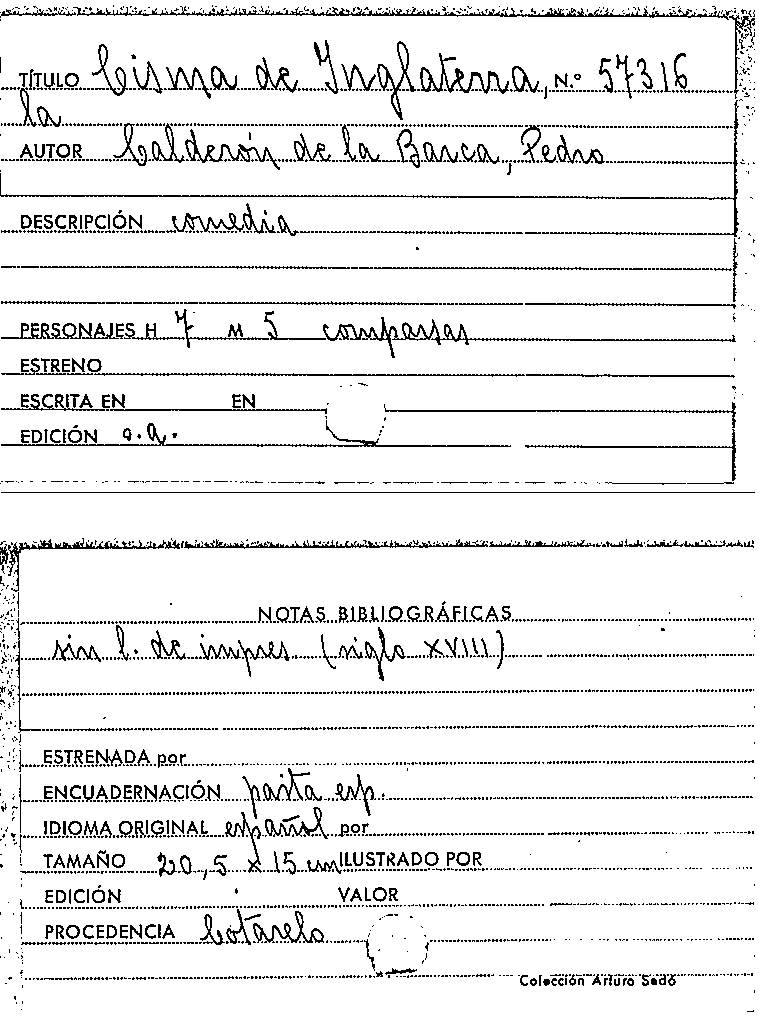 TÍTULO Cisma de Inglaterra, N.º 57316
la
AUTOR Calderón de la Barca, Pedro
DESCRIPCIÓN comedia
PERSONAJES H 7 M 5 comparsas
ESTRENO
ESCRITA EN EN
EDICIÓN s.a.
NOTAS BIBLIOGRÁFICAS
sin l. de impres. (siglo XVIII)
ESTRENADA por
ENCUADERNACIÓN pasta esp.
IDIOMA ORIGINAL español por
TAMAÑO 20,5 x 15 cm ILUSTRADO POR
EDICIÓN VALOR
PROCEDENCIA Cotarelo
Colección Arturo Sedó